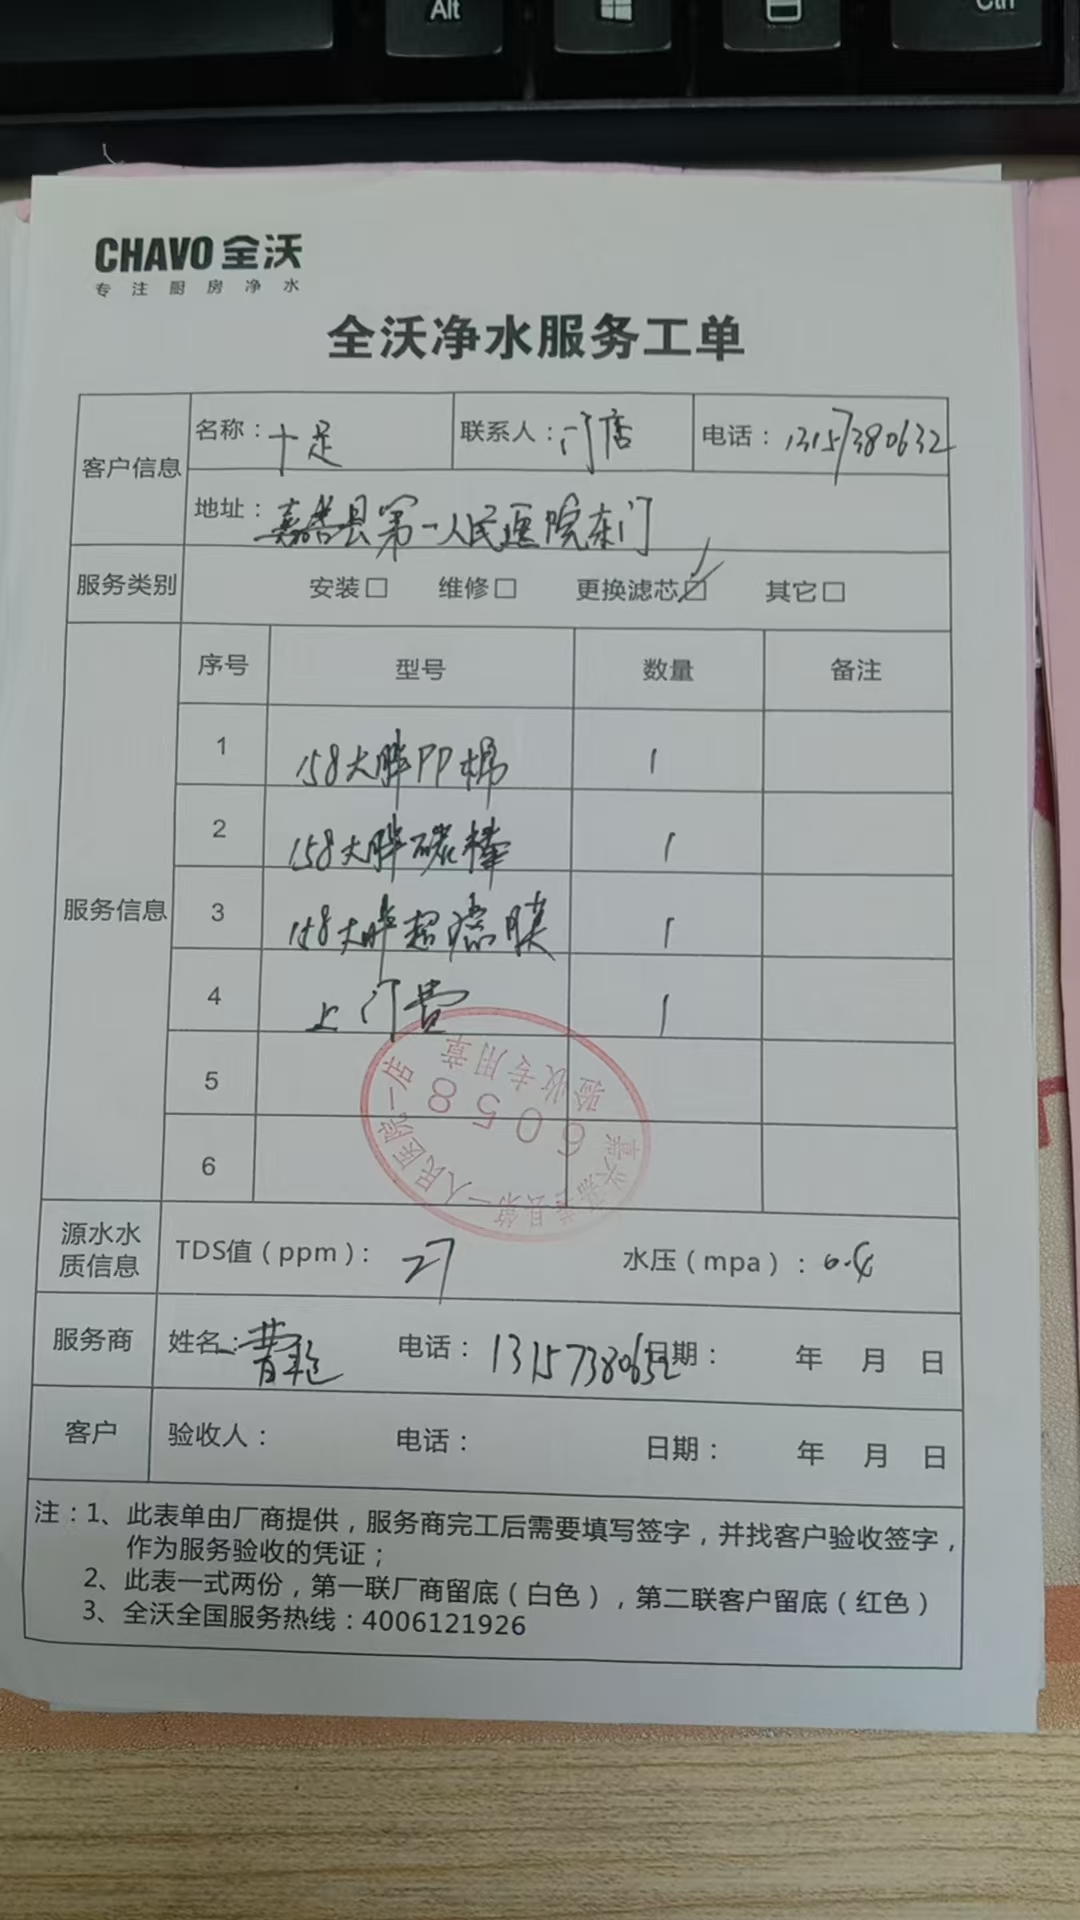 Alt
Ctrl
CHAVO 全沃
专注厨房净水
全沃净水服务工单
客户信息
名称：十足
联系人：门店
电话：13157380632
地址：嘉善县第一人民医院东门
服务类别
安装□ 维修□ 更换滤芯☑ 其它□
服务信息
序号 型号 数量 备注
1 158大胖PP棉 1
2 158大胖碳棒 1
3 158大胖超滤膜 1
4 上门费 1
5
6
嘉兴嘉善县第一人民医院一店
6058
验收专用章
源水水质信息
TDS值（ppm）：27 水压（mpa）：0.4
服务商
姓名： 电话：13157380632 日期： 年 月 日
客户
验收人： 电话： 日期： 年 月 日
注：1、此表单由厂商提供，服务商完工后需要填写签字，并找客户验收签字，
作为服务验收的凭证；
2、此表一式两份，第一联厂商留底（白色），第二联客户留底（红色）
3、全沃全国服务热线：4006121926